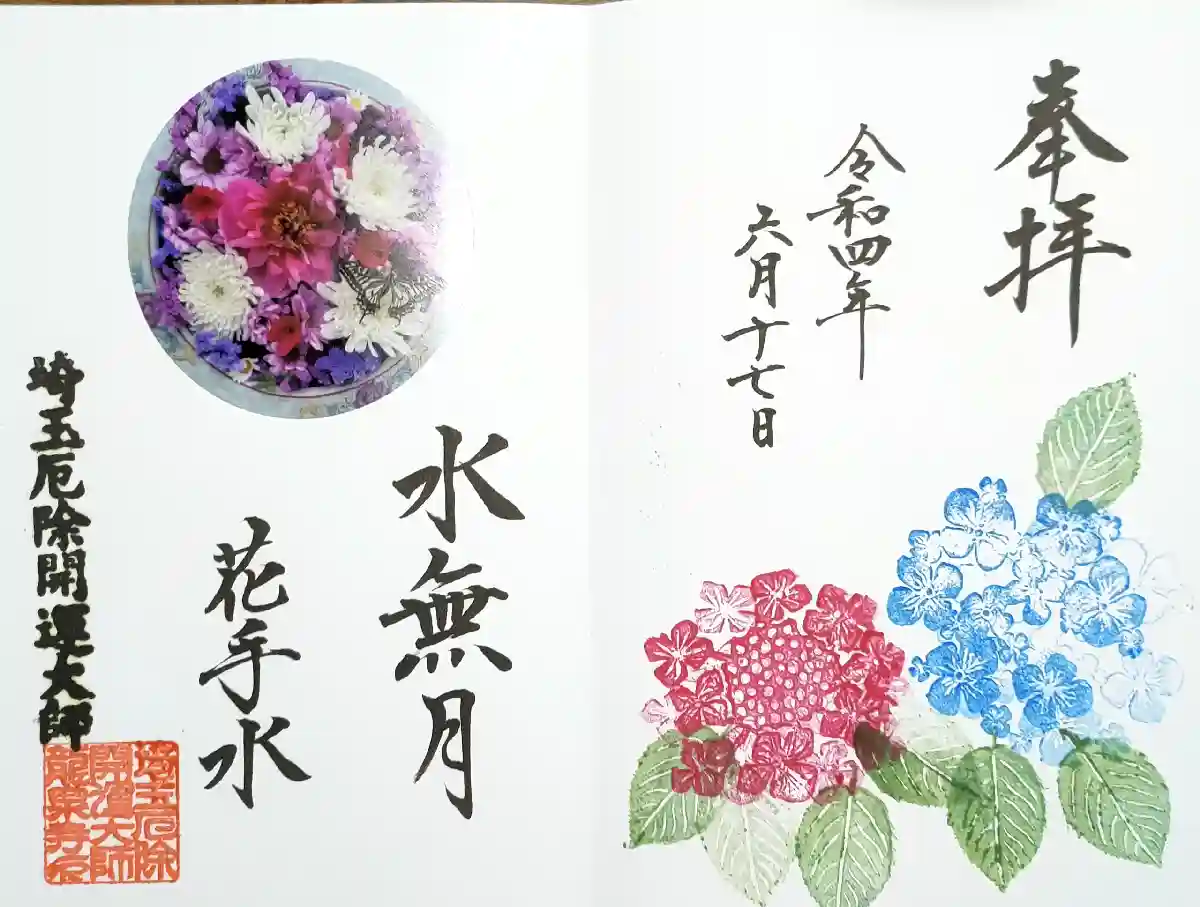 奉拝
令和四年
六月十七日
水無月
花手水
埼玉厄除開運大師
埼玉厄除
開運大師
龍泉寺印